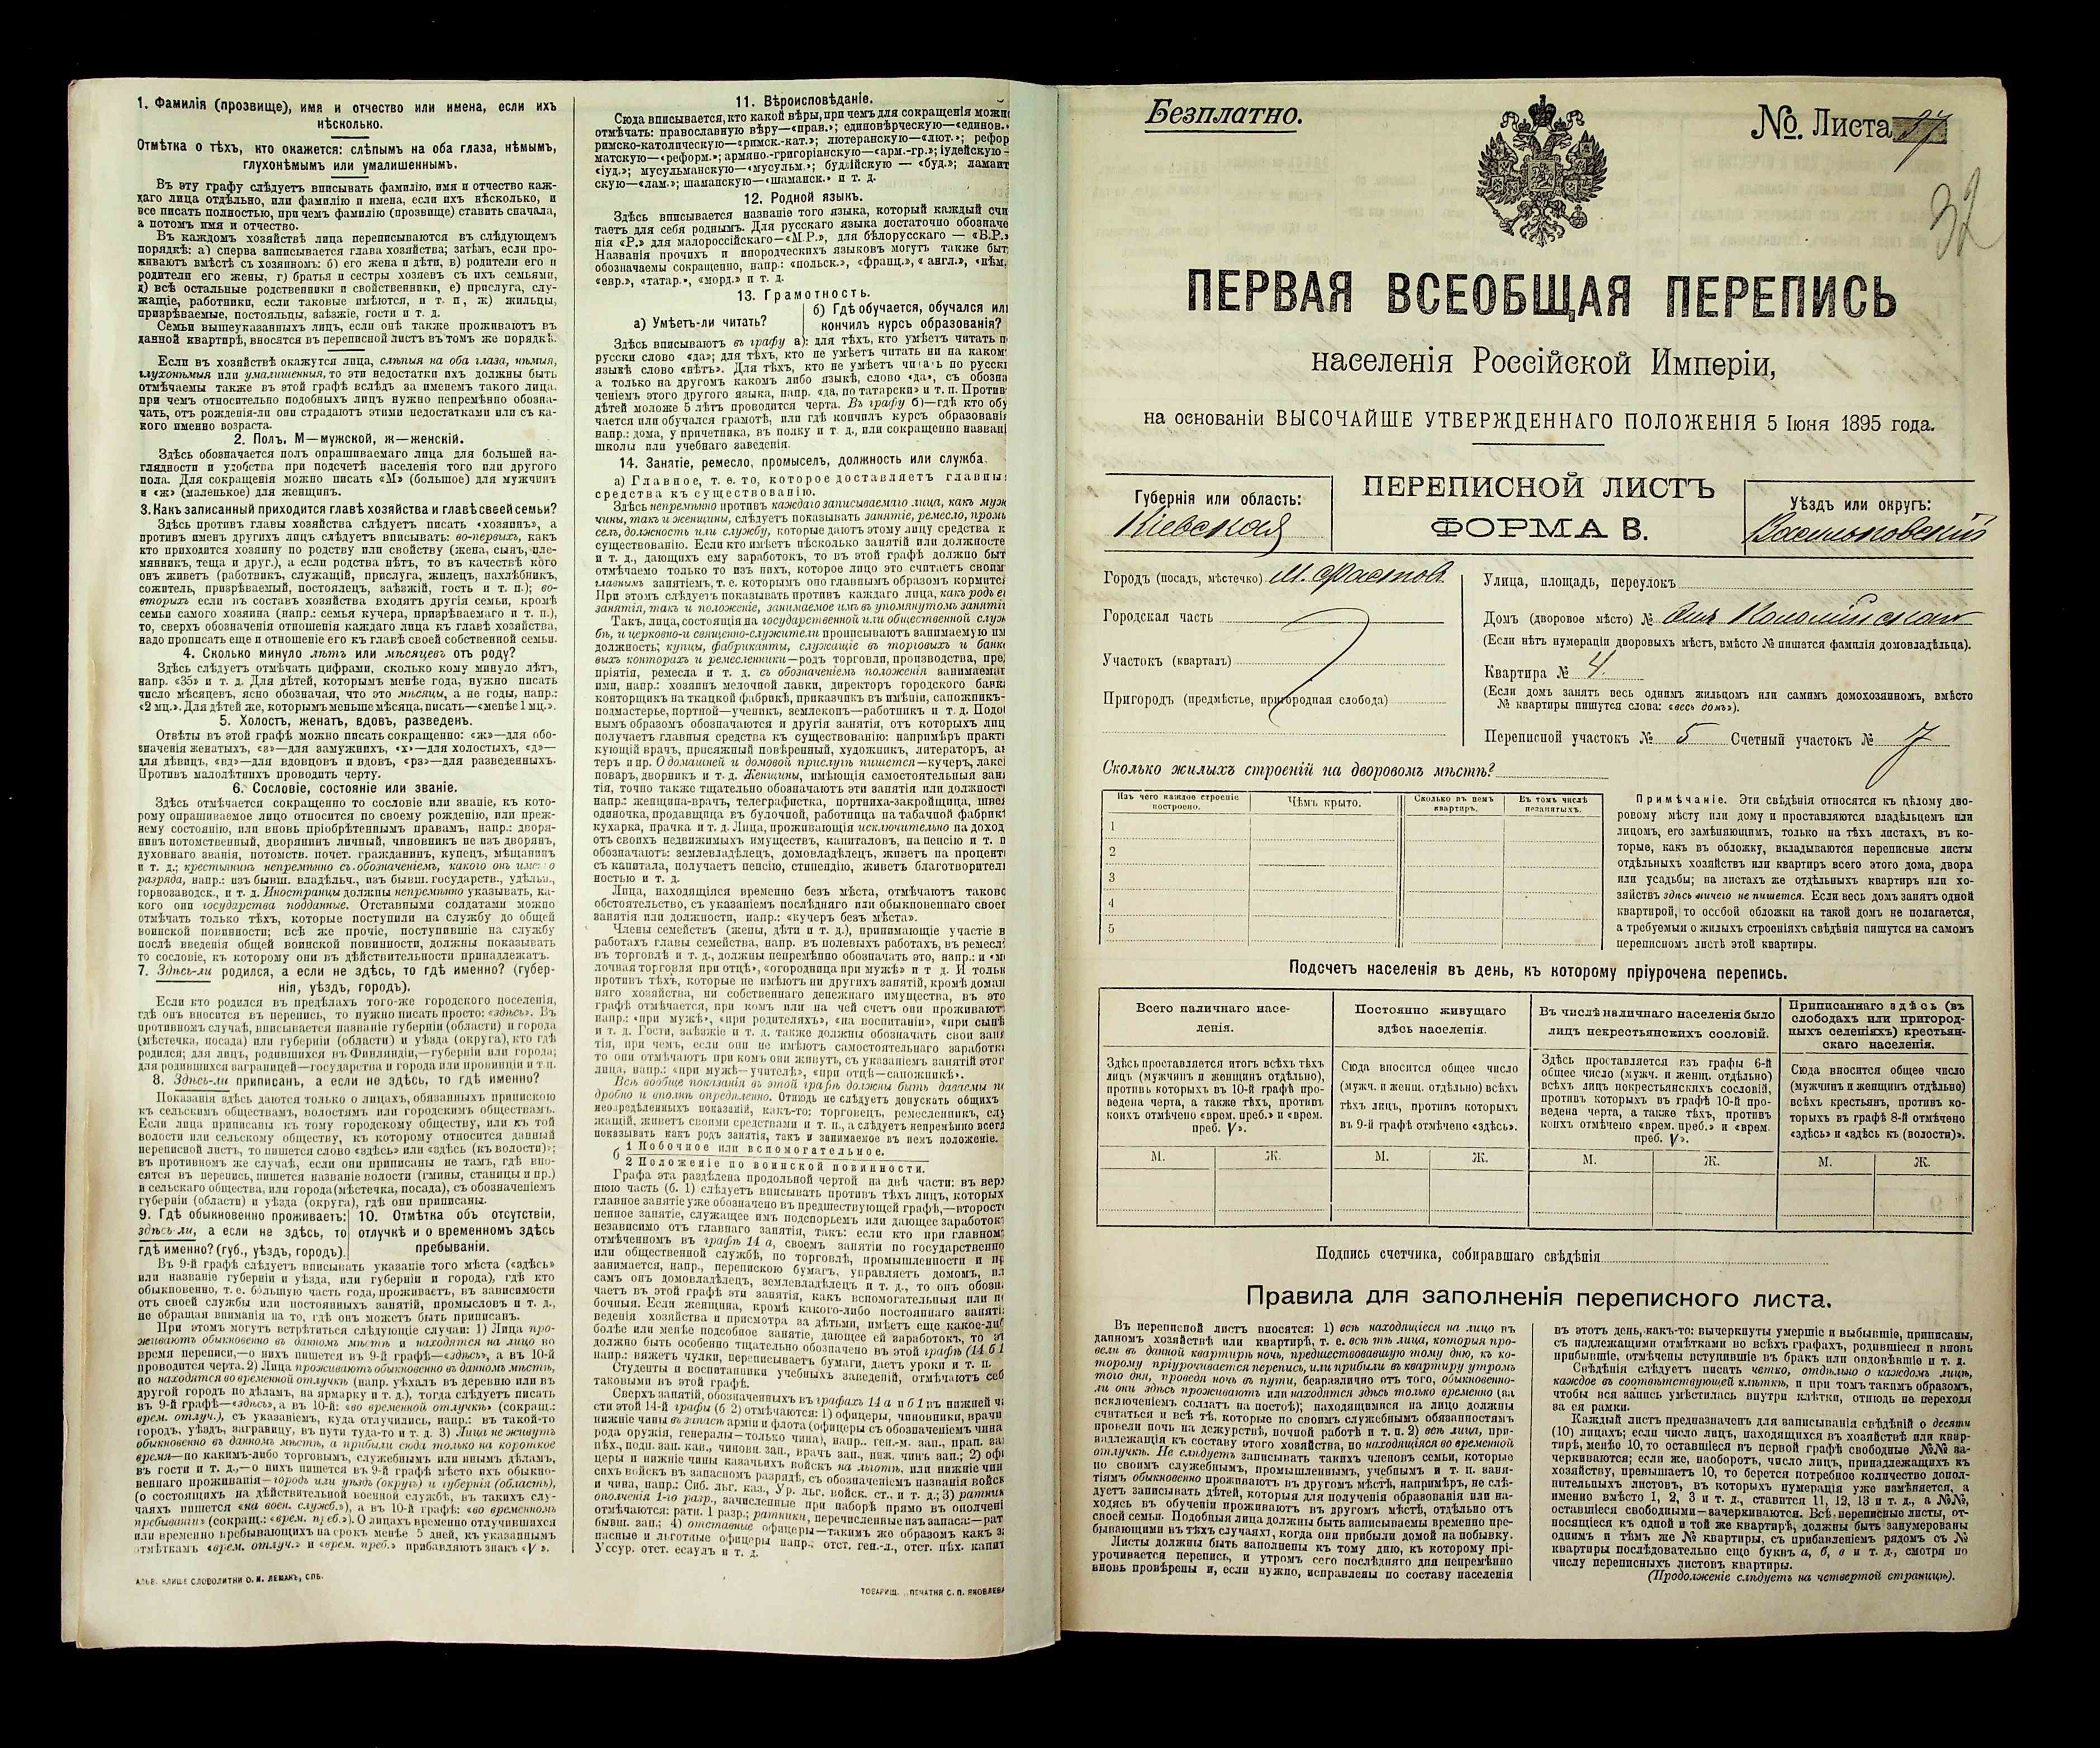 1. Фамилія (прозвище), имя и отчество или имена, если ихъ
нѣсколько.
Отмѣтка о тѣхъ, кто окажется: слѣпымъ на оба глаза, нѣмымъ,
глухонѣмымъ или умалишеннымъ.
Въ эту графу слѣдуетъ вписывать фамилію, имя и отчество каж-
даго лица отдѣльно, или фамилію и имена, если ихъ нѣсколько, и
все писать полностью, при чемъ фамилію (прозвище) ставить сначала,
а потомъ имя и отчество.
Въ каждомъ хозяйствѣ лица переписываются въ слѣдующемъ
порядкѣ: а) сперва записывается глава хозяйства; затѣмъ, если про-
живаютъ вмѣстѣ съ хозяиномъ: б) его жена и дѣти, в) родители его и
родители его жены, г) братья и сестры хозяевъ съ ихъ семьями,
д) всѣ остальные родственники и свойственники, е) прислуга, слу-
жащіе, работники, если таковые имѣются, и т. п, ж) жильцы,
призрѣваемые, постояльцы, заѣзжіе, гости и т. п.
Семьи вышеуказанныхъ лицъ, если онѣ также проживаютъ въ
данной квартирѣ, вносятся въ переписной листъ въ томъ же порядкѣ.
Если въ хозяйствѣ окажутся лица, слѣпыя на оба глаза, нѣмыя,
глухонѣмыя или умалишенныя, то эти недостатки ихъ должны быть
отмѣчаемы также въ этой графѣ вслѣдъ за именемъ такого лица,
при чемъ относительно подобныхъ лицъ нужно непремѣнно обозна-
чать, отъ рожденія-ли они страдаютъ этими недостатками или съ ка-
кого именно возраста.
2. Полъ. М—мужской, ж—женскій.
Здѣсь обозначается полъ опрашиваемаго лица для большей на-
глядности и удобства при подсчетѣ населенія того или другого
пола. Для сокращенія можно писать «М» (большое) для мужчинъ
и «ж» (маленькое) для женщинъ.
3. Какъ записанный приходится главѣ хозяйства и главѣ своей семьи?
Здѣсь противъ главы хозяйства слѣдуетъ писать «хозяинъ», а
противъ именъ другихъ лицъ слѣдуетъ вписывать: во-первыхъ, какъ
кто приходится хозяину по родству или свойству (жена, сынъ, пле-
мянникъ, теща и друг.), а если родства нѣтъ, то въ качествѣ кого
онъ живетъ (работникъ, служащій, прислуга, жилецъ, нахлѣбникъ,
сожитель, призрѣваемый, постоялецъ, заѣзжій, гость и т. п.); во-
вторыхъ если въ составъ хозяйства входятъ другія семьи, кромѣ
семьи самого хозяина (напр.: семья кучера, призрѣваемаго и т. п.),
то, сверхъ обозначенія отношенія каждаго лица къ главѣ хозяйства,
надо прописать еще и отношеніе его къ главѣ своей собственной семьи.
4. Сколько минуло лѣтъ или мѣсяцевъ отъ роду?
Здѣсь слѣдуетъ отмѣчать цифрами, сколько кому минуло лѣтъ,
напр. «35» и т. д. Для дѣтей, которымъ менѣе года, нужно писать
число мѣсяцевъ, ясно обозначая, что это мѣсяцы, а не годы, напр.:
«2 мц.». Для дѣтей же, которымъ меньше мѣсяца, писать—«менѣе 1 мц.».
5. Холостъ, женатъ, вдовъ, разведенъ.
Отвѣты въ этой графѣ можно писать сокращенно: «ж»—для обо-
значенія женатыхъ, «з»—для замужнихъ, «х»—для холостыхъ, «д»—
для дѣвицъ, «вд»—для вдовцовъ и вдовъ, «рз»—для разведенныхъ.
Противъ малолѣтнихъ проводить черту.
6. Сословіе, состояніе или званіе.
Здѣсь отмѣчается сокращенно то сословіе или званіе, къ кото-
рому опрашиваемое лицо относится по своему рожденію, или преж-
нему состоянію, или вновь пріобрѣтеннымъ правамъ, напр.: дворя-
нинъ потомственный, дворянинъ личный, чиновникъ не изъ дворянъ,
духовнаго званія, потомств. почет. гражданинъ, купецъ, мѣщанинъ
и т. д.; крестьянинъ непремѣнно съ обозначеніемъ, какого онъ имено
разряда, напр.: изъ бывш. владѣльч., изъ бывш. государств., удѣльн.,
горнозаводск., и т. д. Иностранцы должны непремѣнно указывать, ка-
кого они государства подданные. Отставными солдатами можно
отмѣчать только тѣхъ, которые поступили на службу до общей
воинской повинности; всѣ же прочіе, поступившіе на службу
послѣ введенія общей воинской повинности, должны показывать
то сословіе, къ которому они въ дѣйствительности принадлежатъ.
7. Здѣсь-ли родился, а если не здѣсь, то гдѣ именно? (губер-
нія, уѣздъ, городъ).
Если кто родился въ предѣлахъ того-же городского поселенія,
гдѣ онъ вносится въ перепись, то нужно писать просто: «здѣсь». Въ
противномъ случаѣ, вписывается названіе губерніи (области) и города
(мѣстечка, посада) или губерніи (области) и уѣзда (округа), кто гдѣ
родился; для лицъ, родившихся въ Финляндіи,—губерніи или города;
для родившихся заграницей—государства и города или провинціи и т.п.
8. Здѣсь-ли приписанъ, а если не здѣсь, то гдѣ именно?
Показанія здѣсь даются только о лицахъ, обязанныхъ припискою
къ сельскимъ обществамъ, волостямъ или городскимъ обществамъ.
Если лица приписаны къ тому городскому обществу, или къ той
волости или сельскому обществу, къ которому относится данный
переписной листъ, то пишется слово «здѣсь» или «здѣсь (къ волости)»;
въ противномъ же случаѣ, если они приписаны не тамъ, гдѣ вно-
сятся въ перепись, пишется названіе волости (гмины, станицы и пр.)
и сельскаго общества, или города (мѣстечка, посада), съ обозначеніемъ
губерніи (области) и уѣзда (округа), гдѣ они приписаны.
9. Гдѣ обыкновенно проживаетъ:
здѣсь-ли, а если не здѣсь, то
гдѣ именно? (губ., уѣздъ, городъ).
10. Отмѣтка объ отсутствіи,
отлучкѣ и о временномъ здѣсь
пребываніи.
Въ 9-й графѣ слѣдуетъ вписывать указаніе того мѣста («здѣсь»
или названіе губерніи и уѣзда, или губерніи и города), гдѣ кто
обыкновенно, т. е. большую часть года, проживаетъ, въ зависимости
отъ своей службы или постоянныхъ занятій, промысловъ и т. д.,
не обращая вниманія на то, гдѣ онъ можетъ быть приписанъ.
При этомъ могутъ встрѣтиться слѣдующіе случаи: 1) Лица про-
живаютъ обыкновенно въ данномъ мѣстѣ и находятся на лицо во
время переписи,—о нихъ пишется въ 9-й графѣ—«здѣсь», а въ 10-й
проводится черта. 2) Лица проживаютъ обыкновенно въ данномъ мѣстѣ,
но находятся во временной отлучкѣ (напр. уѣхалъ въ деревню или въ
другой городъ по дѣламъ, на ярмарку и т. д.), тогда слѣдуетъ писать
въ 9-й графѣ—«здѣсь», а въ 10-й: «во временной отлучкѣ» (сокращ.:
врем. отлуч.), съ указаніемъ, куда отлучились, напр.: въ такой-то
городъ, уѣздъ, заграницу, въ пути туда-то и т. д. 3) Лица не живутъ
обыкновенно въ данномъ мѣстѣ, а прибыли сюда только на короткое
время—по какимъ-либо торговымъ, служебнымъ или инымъ дѣламъ,
въ гости и т. д.,—о нихъ пишется въ 9-й графѣ мѣсто ихъ обыкно-
веннаго проживанія—городъ или уѣздъ (округъ) и губернія (область),
(о состоящихъ на дѣйствительной военной службѣ, въ такихъ слу-
чаяхъ пишется «на воен. службѣ»), а въ 10-й графѣ: «во временномъ
пребываніи» (сокращ.: «врем. преб.»). О лицахъ временно отлучившихся
или временно пребывающихъ на срокъ менѣе 5 дней, къ указаннымъ
отмѣткамъ «врем. отлуч.» и «врем. преб.» прибавляютъ знакъ «V».
КЛИШЕ СЛОВОЛИТНИ О. И. ЛЕМАНЪ, СПБ.
11. Вѣроисповѣданіе.
Сюда вписывается, кто какой вѣры, при чемъ для сокращенія можн
отмѣчать: православную вѣру—«прав.»; единовѣрческую—«единов.»
римско-католическую—«римск.-кат.»; лютеранскую—«лют.»; рефор
матскую—«реформ.»; армяно-григоріанскую—«арм.-гр.»; іудейскую—
«іуд.»; мусульманскую—«мусульм.»; буддійскую — «буд.»; ламаит
скую—«лам.»; шаманскую—«шаманск.» и т. д.
12. Родной языкъ.
Здѣсь вписывается названіе того языка, который каждый счи
таетъ для себя роднымъ. Для русскаго языка достаточно обозначе
нія «Р.» для малороссійскаго—«М.Р.», для бѣлорусскаго — «Б.Р.»
Названія прочихъ и инородческихъ языковъ могутъ также быт
обозначаемы сокращенно, напр.: «польск.», «франц.», «англ.», «нѣм.
«евр.», «татар.», «морд.» и т. д.
13. Грамотность.
а) Умѣетъ-ли читать?
б) Гдѣ обучается, обучался ил
кончилъ курсъ образованія?
Здѣсь вписываютъ въ графу а): для тѣхъ, кто умѣетъ читать п
русски слово «да»; для тѣхъ, кто не умѣетъ читать ни на каком
языкѣ слово «нѣтъ». Для тѣхъ, кто не умѣетъ читать по русск
а только на другомъ какомъ либо языкѣ, слово «да», съ обозна
ченіемъ этого другого языка, напр. «да, по татарски» и т. п. Против
дѣтей моложе 5 лѣтъ проводится черта. Въ графу б)—гдѣ кто обу
чается или обучался грамотѣ, или гдѣ кончилъ курсъ образовані
напр.: дома, у причетника, въ полку и т. д., или сокращенно назван
школы или учебнаго заведенія.
14. Занятіе, ремесло, промыселъ, должность или служба.
а) Главное, т. е. то, которое доставляетъ главны
средства къ существованію.
Здѣсь непремѣнно противъ каждаго записываемаго лица, какъ муж
чины, такъ и женщины, слѣдуетъ показывать занятіе, ремесло, промы
селъ, должность или службу, которые даютъ этому лицу средства к
существованію. Если кто имѣетъ нѣсколько занятій или должносте
и т. д., дающихъ ему заработокъ, то въ этой графѣ должно быт
отмѣчаемо только то изъ нихъ, которое лицо это считаетъ своим
главнымъ занятіемъ, т. е. которымъ оно главнымъ образомъ кормитс
При этомъ слѣдуетъ показывать противъ каждаго лица, какъ родъ е
занятія, такъ и положеніе, занимаемое имъ въ упомянутомъ заняті
Такъ, лица, состоящія на государственной или общественной служ
бѣ, и церковно-и священно-служители прописываютъ занимаемую им
должность; купцы, фабриканты, служащіе въ торговыхъ и банк
выхъ конторахъ и ремесленники—родъ торговли, производства, пре
пріятія, ремесла и т. д. съ обозначеніемъ положенія занимаемаг
ими, напр.: хозяинъ мелочной лавки, директоръ городского банк
конторщикъ на ткацкой фабрикѣ, приказчикъ въ имѣніи, сапожникъ-
подмастерье, портной—ученикъ, землекопъ—работникъ и т. д. Подо
нымъ образомъ обозначаются и другія занятія, отъ которыхъ лиц
получаетъ главныя средства къ существованію: напримѣръ практ
кующій врачъ, присяжный повѣренный, художникъ, литераторъ, а
теръ и пр. О домашней и домовой прислугѣ пишется—кучеръ, лаке
поваръ, дворникъ и т. д. Женщины, имѣющія самостоятельныя зан
тія, точно также тщательно обозначаютъ эти занятія или должност
напр.: женщина-врачъ, телеграфистка, портниха-закройщица, швея
одиночка, продавщица въ булочной, работница на табачной фабрик
кухарка, прачка и т. д. Лица, проживающія исключительно на доход
отъ своихъ недвижимыхъ имуществъ, капиталовъ, на пенсію и т. п
обозначаютъ: землевладѣлецъ, домовладѣлецъ, живетъ на процент
съ капитала, получаетъ пенсію, стипендію, живетъ благотворител
ностью и т. д.
Лица, находящіяся временно безъ мѣста, отмѣчаютъ таково
обстоятельство, съ указаніемъ послѣдняго или обыкновеннаго своег
занятія или должности, напр.: «кучеръ безъ мѣста».
Члены семействъ (жены, дѣти и т. д.), принимающіе участіе в
работахъ главы семейства, напр. въ полевыхъ работахъ, въ ремесл
въ торговлѣ и т. д., должны непремѣнно обозначать это, напр.: и «м
лочная торговля при отцѣ», «огородница при мужѣ» и т д. И тольк
противъ тѣхъ, которые не имѣютъ ни другихъ занятій, кромѣ домаш
няго хозяйства, ни собственнаго денежнаго имущества, въ это
графѣ отмѣчается, при комъ или на чей счетъ они проживают
напр.: «при мужѣ», «при родителяхъ», «на воспитаніи», «при сынѣ
и т. д. Гости, заѣзжіе и т. д. также должны обозначать свои заня
тія, при чемъ, если они не имѣютъ самостоятельнаго заработк
то они отмѣчаютъ при комъ они живутъ, съ указаніемъ занятій этог
лица, напр.: «при мужѣ—учителѣ», «при отцѣ—сапожникѣ».
Всѣ вообще показанія въ этой графѣ должны быть даваемы по
дробно и вполнѣ опредѣленно. Отнюдь не слѣдуетъ допускать общихъ
неопредѣленныхъ показаній, какъ-то: торговецъ, ремесленникъ, слу
жащій, живетъ своими средствами и т. п., а слѣдуетъ непремѣнно всег
показывать какъ родъ занятія, такъ и занимаемое въ немъ положеніе.
б 1 Побочное или вспомогательное.
2 Положеніе по воинской повинности.
Графа эта раздѣлена продольной чертой на двѣ части: въ верх
нюю часть (б. 1) слѣдуетъ вписывать противъ тѣхъ лицъ, которых
главное занятіе уже обозначено въ предшествующей графѣ,—второст
пенное занятіе, служащее имъ подспорьемъ или дающее заработок
независимо отъ главнаго занятія, такъ: если кто при главном
отмѣченномъ въ графѣ 14 а, своемъ занятіи по государственно
или общественной службѣ, по торговлѣ, промышленности и пр
занимается, напр., перепискою бумагъ, управляетъ домомъ, ил
самъ онъ домовладѣлецъ, землевладѣлецъ и т. д., то онъ обозн
чаетъ въ этой графѣ эти занятія, какъ вспомогательныя или по
бочныя. Если женщина, кромѣ какого-либо постояннаго заняті
веденія хозяйства и присмотра за дѣтьми, имѣетъ еще какое-ли
болѣе или менѣе подсобное занятіе, дающее ей заработокъ, то эт
должно быть особенно тщательно обозначено въ этой графѣ (14 б 1
напр.: вяжетъ чулки, переписываетъ бумаги, даетъ уроки и т. п.
Студенты и воспитанники учебныхъ заведеній, отмѣчаютъ себ
таковыми въ этой графѣ.
Сверхъ занятій, обозначенныхъ въ графахъ 14 а и б 1 въ нижней ч
сти этой 14-й графы (б 2) отмѣчаются: 1) офицеры, чиновники, врачи
нижніе чины въ запасѣ арміи и флота (офицеры съ обозначеніемъ чина
рода оружія, генералы—только чина), напр.: ген.-м. зап., прап. за
пѣх., подп. зап. кав., чиновн. зап., врачъ зап., ниж. чинъ зап.; 2) офи
церы и нижніе чины казачьихъ войскъ на льготѣ, или нижніе чин
сихъ войскъ въ запасномъ разрядѣ, съ обозначеніемъ названія войск
и чина, напр.: Сиб. льг. каз., Ур. льг. войск. ст., и т. д.; 3) ратник
ополченія 1-го разр., зачисленные при наборѣ прямо въ ополчені
отмѣчаются: ратн. 1 разр.; ратники, перечисленные изъ запаса:—рат
бывш. зап.; 4) отставные офицеры—такимъ же образомъ какъ з
пасные и льготные офицеры напр.: отст. ген.-л., отст. пѣх. капит
Уссур. отст. есаулъ и т. д.
ТОВАРИЩ. ПЕЧАТНЯ С. П. ЯКОВЛЕВА
Безплатно.
№ Листа 37
32
ПЕРВАЯ ВСЕОБЩАЯ ПЕРЕПИСЬ
населенія Россійской Имперіи,
на основаніи ВЫСОЧАЙШЕ УТВЕРЖДЕННАГО ПОЛОЖЕНІЯ 5 Іюня 1895 года.
Губернія или область:
Кіевская
ПЕРЕПИСНОЙ ЛИСТЪ
ФОРМА В.
Уѣздъ или округъ:
Васильковскій
Городъ (посадъ, мѣстечко) м. Фастовъ
Городская часть
Участокъ (кварталъ)
Пригородъ (предмѣстье, пригородная слобода)
Улица, площадь, переулокъ
Домъ (дворовое мѣсто) №
(Если нѣтъ нумераціи дворовыхъ мѣстъ, вмѣсто № пишется фамилія домовладѣльца).
Квартира № 4.
(Если домъ занятъ весь однимъ жильцомъ или самимъ домохозяиномъ, вмѣсто
№ квартиры пишутся слова: «весь домъ»).
Переписной участокъ № 5 Счетный участокъ № 7
Сколько жилыхъ строеній на дворовомъ мѣстѣ?
Изъ чего каждое строеніе построено.
Чѣмъ крыто.
Сколько въ немъ квартиръ.
Въ томъ числѣ незанятыхъ.
1
2
3
4
5
Примѣчаніе. Эти свѣдѣнія относятся къ цѣлому дво-
ровому мѣсту или дому и проставляются владѣльцемъ или
лицомъ, его замѣняющимъ, только на тѣхъ листахъ, въ ко-
торые, какъ въ обложку, вкладываются переписные листы
отдѣльныхъ хозяйствъ или квартиръ всего этого дома, двора
или усадьбы; на листахъ же отдѣльныхъ квартиръ или хо-
зяйствъ здѣсь ничего не пишется. Если весь домъ занятъ одной
квартирой, то особой обложки на такой домъ не полагается,
а требуемыя о жилыхъ строеніяхъ свѣдѣнія пишутся на самомъ
переписномъ листѣ этой квартиры.
Подсчетъ населенія въ день, къ которому пріурочена перепись.
Всего наличнаго насе-
ленія.
Здѣсь проставляется итогъ всѣхъ тѣхъ
лицъ (мужчинъ и женщинъ отдѣльно),
противъ которыхъ въ 10-й графѣ про-
ведена черта, а также тѣхъ, противъ
коихъ отмѣчено «врем. преб.» и «врем.
преб. V».
М. Ж.
Постоянно живущаго
здѣсь населенія.
Сюда вносится общее число
(мужч. и женщ. отдѣльно) всѣхъ
тѣхъ лицъ, противъ которыхъ
въ 9-й графѣ отмѣчено «здѣсь».
М. Ж.
Въ числѣ наличнаго населенія было
лицъ некрестьянскихъ сословій.
Здѣсь проставляется изъ графы 6-й
общее число (мужч. и женщ. отдѣльно)
всѣхъ лицъ некрестьянскихъ сословій,
противъ которыхъ въ графѣ 10-й про-
ведена черта, а также тѣхъ, противъ
коихъ отмѣчено «врем. преб.» и «врем.
преб. V».
М. Ж.
Приписаннаго здѣсь (въ
слободахъ или пригород-
ныхъ селеніяхъ) крестьян-
скаго населенія.
Сюда вносится общее число
(мужчинъ и женщинъ отдѣльно)
всѣхъ крестьянъ, противъ ко-
торыхъ въ графѣ 8-й отмѣчено
«здѣсь» и «здѣсь къ (волости)».
М. Ж.
Подпись счетчика, собиравшаго свѣдѣнія
Правила для заполненія переписного листа.
Въ переписной листъ вносятся: 1) всѣ находящіеся на лицо въ
данномъ хозяйствѣ или квартирѣ, т. е. всѣ тѣ лица, которыя про-
вели въ данной квартирѣ ночь, предшествовавшую тому дню, къ ко-
торому пріурочивается перепись, или прибыли въ квартиру утромъ
того дня, проведя ночь въ пути, безразлично отъ того, обыкновенно-
ли они здѣсь проживаютъ или находятся здѣсь только временно (за
исключеніемъ солдатъ на постоѣ); находящимися на лицо должны
считаться и всѣ тѣ, которые по своимъ служебнымъ обязанностямъ
провели ночь на дежурствѣ, ночной работѣ и т. п. 2) всѣ лица, при-
надлежащія къ составу этого хозяйства, но находящіяся во временной
отлучкѣ. Не слѣдуетъ записывать такихъ членовъ семьи, которые
по своимъ служебнымъ, промышленнымъ, учебнымъ и т. п. заня-
тіямъ обыкновенно проживаютъ въ другомъ мѣстѣ, напримѣръ, не слѣ-
дуетъ записывать дѣтей, которыя для полученія образованія или на-
ходясь въ обученіи проживаютъ въ другомъ мѣстѣ, отдѣльно отъ
своей семьи. Подобныя лица должны быть записываемы временно пре-
бывающими въ тѣхъ случаяхъ, когда они прибыли домой на побывку.
Листы должны быть заполнены къ тому дню, къ которому прі-
урочивается перепись, и утромъ сего послѣдняго дня непремѣнно
вновь провѣрены и, если нужно, исправлены по составу населенія
въ этотъ день, какъ-то: вычеркнуты умершіе и выбывшіе, приписаны,
съ надлежащими отмѣтками во всѣхъ графахъ, родившіеся и вновь
прибывшіе, отмѣчены вступившіе въ бракъ или овдовѣвшіе и т. д.
Свѣдѣнія слѣдуетъ писать четко, отдѣльно о каждомъ лицѣ,
каждое въ соотвѣтствующей клѣткѣ, и при томъ такимъ образомъ,
чтобы вся запись умѣстилась внутри клѣтки, отнюдь не переходя
за ея рамки.
Каждый листъ предназначенъ для записыванія свѣдѣній о десяти
(10) лицахъ; если число лицъ, находящихся въ хозяйствѣ или квар-
тирѣ, менѣе 10, то оставшіеся въ первой графѣ свободные №№ за-
черкиваются; если же, наоборотъ, число лицъ, принадлежащихъ къ
хозяйству, превышаетъ 10, то берется потребное количество допол-
нительныхъ листовъ, въ которыхъ нумерація уже измѣняется, а
именно вмѣсто 1, 2, 3 и т. д., ставится 11, 12, 13 и т. д., а №№,
оставшіеся свободными—зачеркиваются. Всѣ переписные листы, от-
носящіеся къ одной и той же квартирѣ, должны быть занумерованы
однимъ и тѣмъ же № квартиры, съ прибавленіемъ рядомъ съ №
квартиры послѣдовательно еще буквъ а, б, в и т. д., смотря по
числу переписныхъ листовъ квартиры.
(Продолженіе слѣдуетъ на четвертой страницѣ).